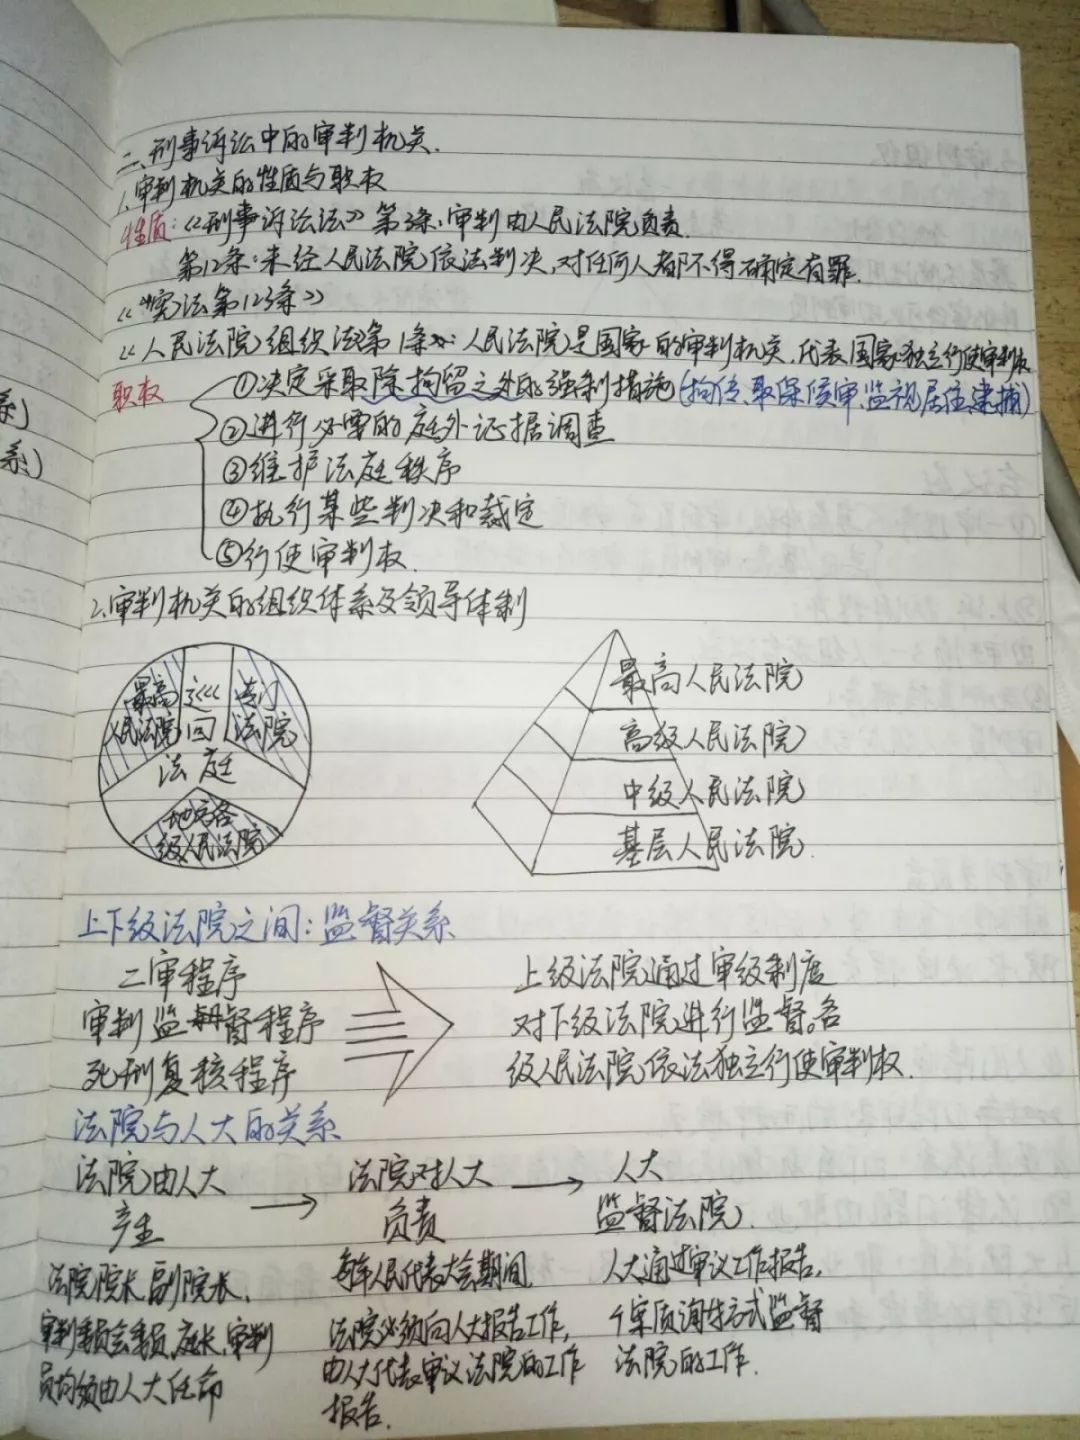 二、刑事诉讼中的审判机关.
1.审判机关的性质与职权
性质:《刑事诉讼法》第3条:审判由人民法院负责.
第12条:未经人民法院依法判决,对任何人都不得确定有罪.
《宪法第123条》
《人民法院组织法》第1条:人民法院是国家的审判机关,代表国家独立行使审判权
职权 ①决定采取除拘留之外的强制措施(拘传、取保候审、监视居住、逮捕)
②进行必要的庭外证据调查
③维护法庭秩序
④执行某些判决和裁定
⑤行使审判权.
2.审判机关的组织体系及领导体制
最高人民法院
巡回法庭
专门法院
地方各级人民法院
最高人民法院
高级人民法院
中级人民法院
基层人民法院.
上下级法院之间:监督关系
二审程序
审判监督程序
死刑复核程序
上级法院通过审级制度
对下级法院进行监督。各
级人民法院依法独立行使审判权.
法院与人大的关系
法院由人大
产生
法院院长、副院长、
审判委员会委员、庭长、审判
员均须由人大任命
法院对人大
负责
每年人民代表大会期间,
法院必须向人大报告工作,
由人大代表审议法院的工作
报告.
人大
监督法院.
人大通过审议工作报告,
个案质询等方式监督
法院的工作.
系)
系)